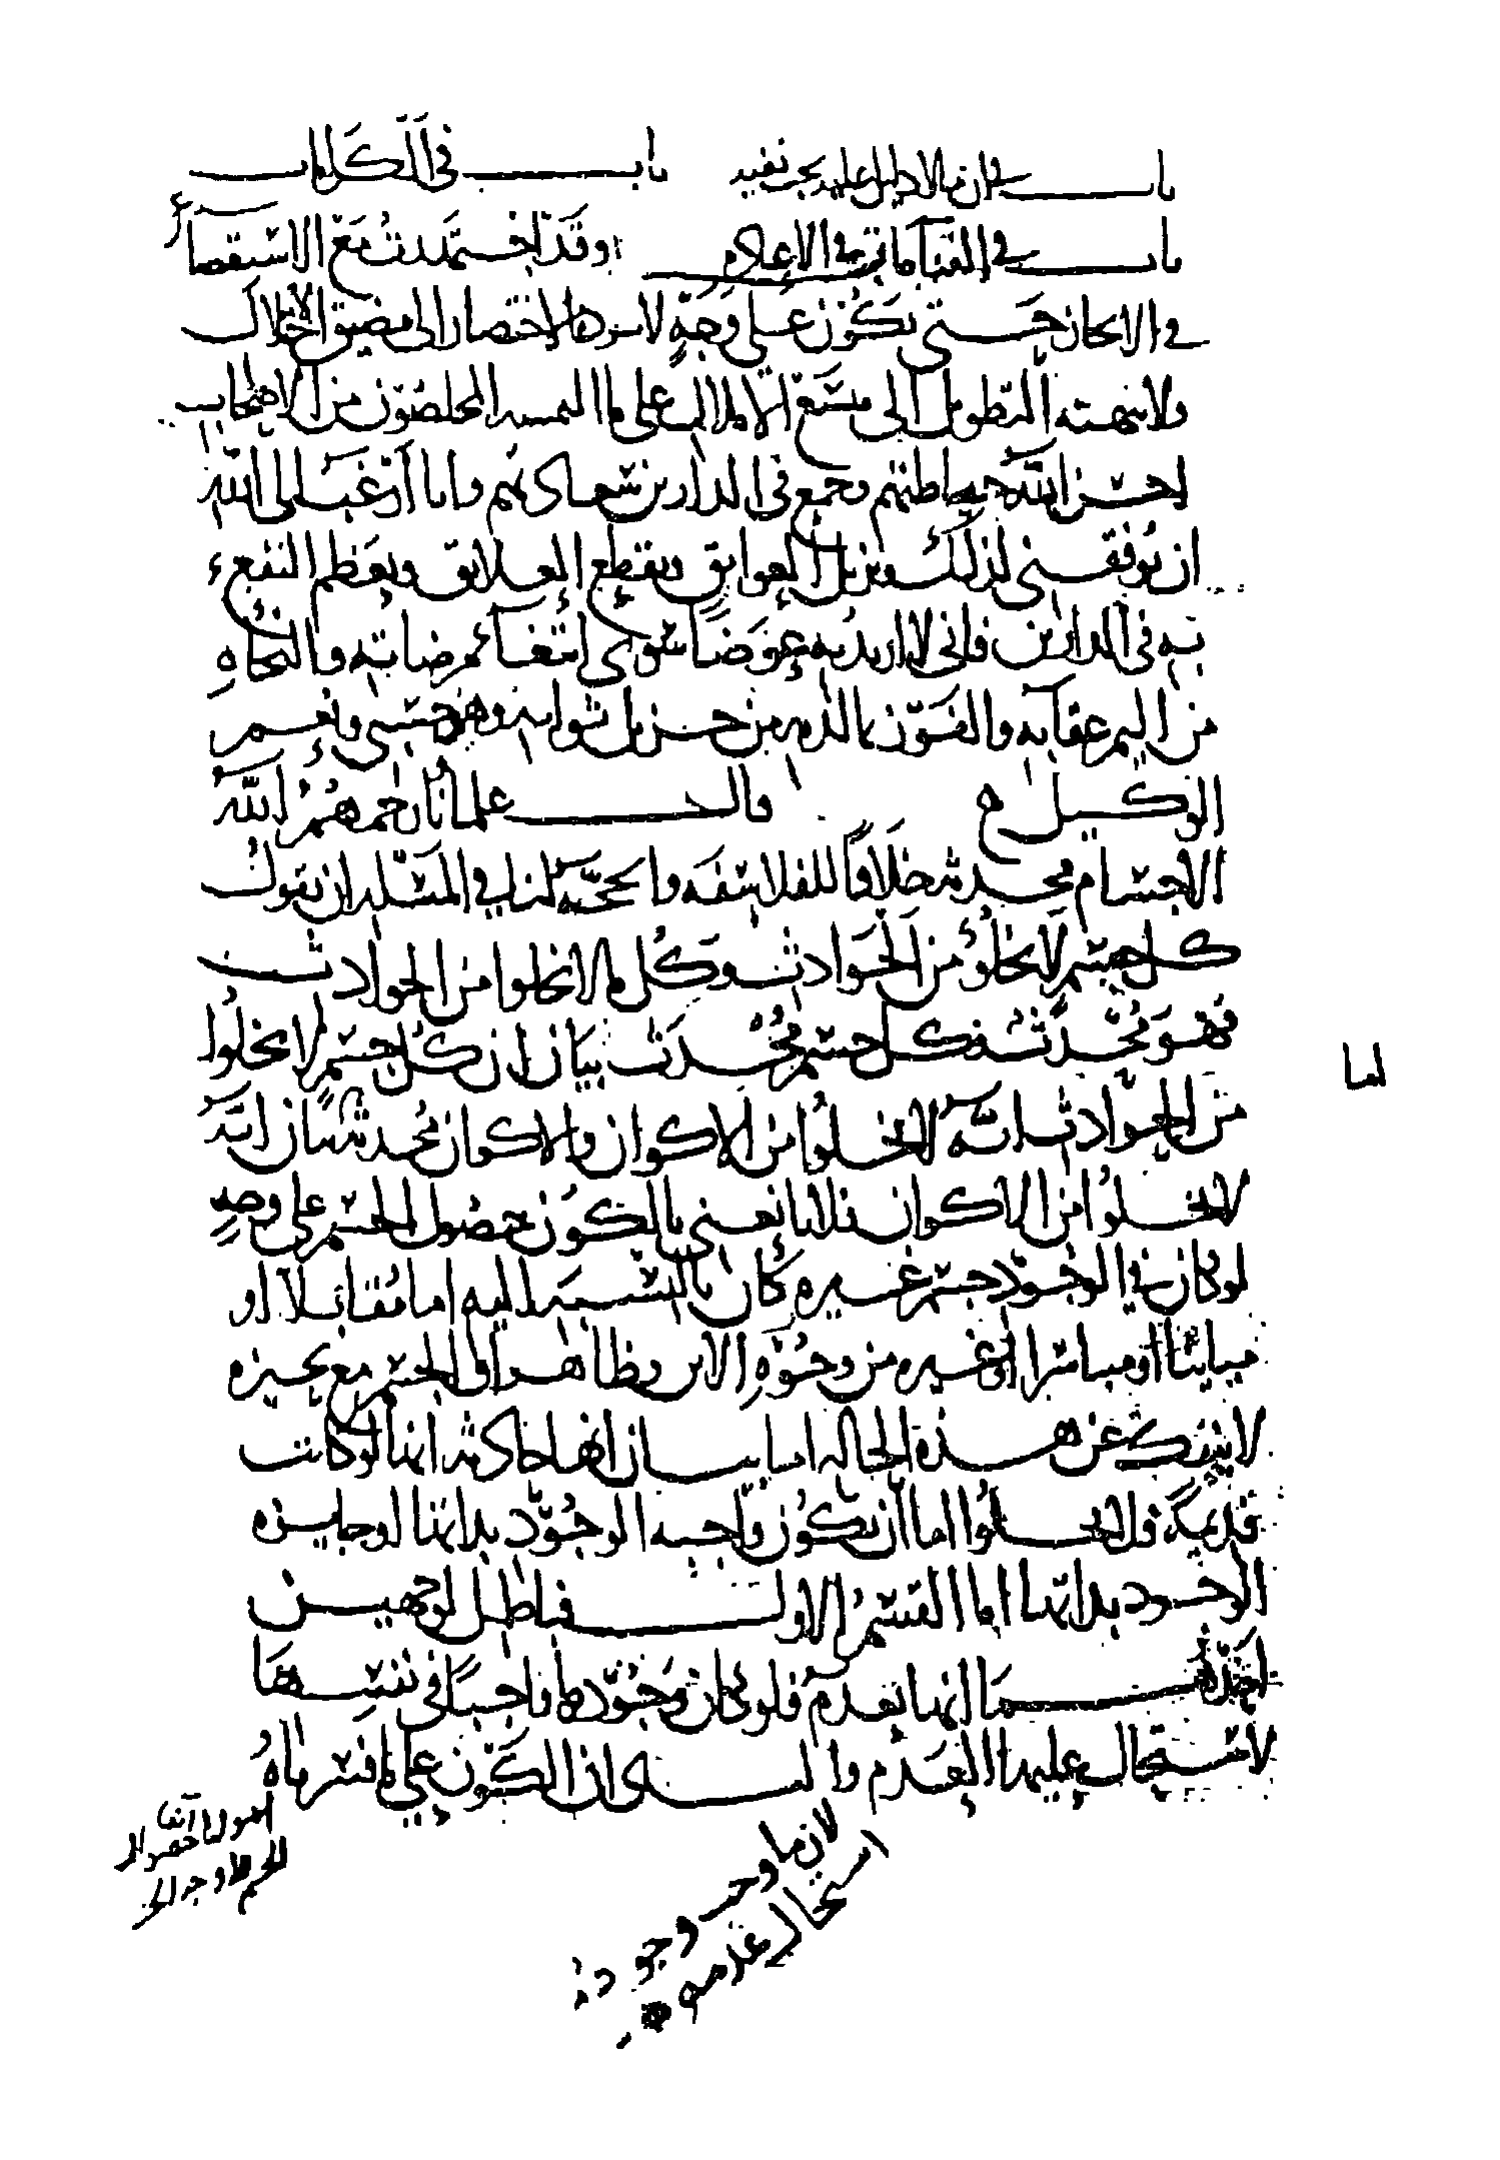 باب في ان ما لا دليل عليه يجب نفيه باب في الكرامات
باب في الفنا باب في الاعادة وقد اجتهدت مع الاستقصاء
في الايجاز حتى يكون على وجه لا يرده الاختصار الى مضيق الاخلال
ولا ينهيه التطويل الى متسع الاملال على ما التمسه المخلصون من الاصحاب
احسن الله حياطتهم وجمع في الدارين شملهم وانا ارغب الى الله
ان يوفقني لذلك ويزيل العوايق ويقطع العلايق ويعظم النفع
به في الدارين فاني لا اريد به عوضا سوى ابتغاء مرضاته والنجاه
من اليم عقابه والفوز بما لديه من جزيل ثوابه وهو حسبي ونعم
الوكيل قالـــ علماؤنا رحمهم الله
الاجسام محدثه خلافا للفلاسفه والحجه لنا في المسله ان نقول
كل جسم لا يخلو من الحوادث وكل ما لا يخلوا من الحوادث
فهو محدث فكل جسم محدث بيان ان كل جسم لا يخلوا
من الحوادث انه لا يخلوا من الاكوان والاكوان محدثه بيان انه
لا يخلوا من الاكوان انا نعني بالكون حصول الجسم على وجه
لو كان في الوجود جسم غيره كان بالنسبه اليه اما مقابلا او
مباينا او مباشرا الى غيره من وجوه الاين وظاهر ان الجسم مع تحيزه
لا ينفك عن هذه الحاله اما بيان انها حادثه انها لو كانت
قديمه فلا يخلوا اما ان تكون واجبه الوجود بذاتها او جايزه
الوجود بذاتها اما القسم الاول فباطل لوجهين
احدهما انها تعدم فلو كان وجودها واجبا في نفسها
لاستحال عليها العدم والثاني ان الكون على ما فسرناه
لان ما وجب وجوده
استحال عدمه
اما
هو انا
حصول
الجسم على وجه